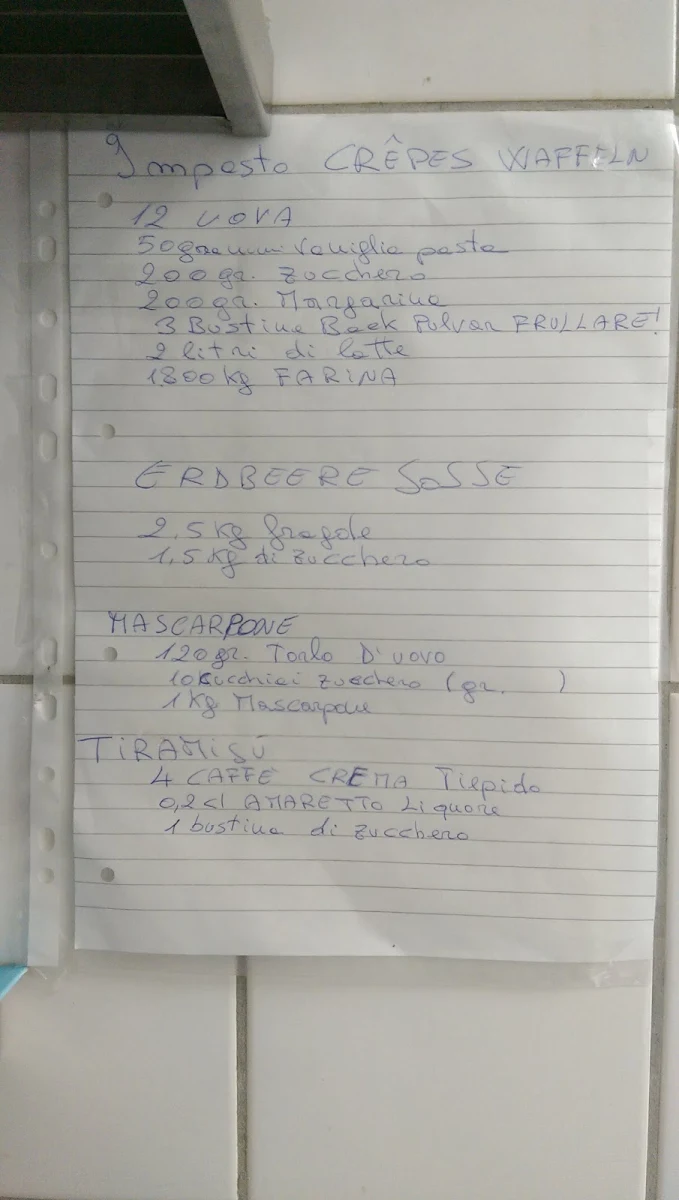 Impasto CRÊPES WAFFELN
12 UOVA
50grammi Vaniglia pasta
200gr. Zucchero
200gr. Margarina
3 Bustine Back Pulver FRULLARE!
2 litri di latte
1800kg FARINA
ERDBEERE SOSSE
2,5 kg fragole
1,5 kg di zucchero
MASCARPONE
120gr. Torlo D'uovo
10 Cucchiai zucchero (gr. )
1 Kg Mascarpone
TIRAMISÚ
4 CAFFÈ CREMA Tiepido
0,2 cl AMARETTO Liquore
1 bustina di zucchero